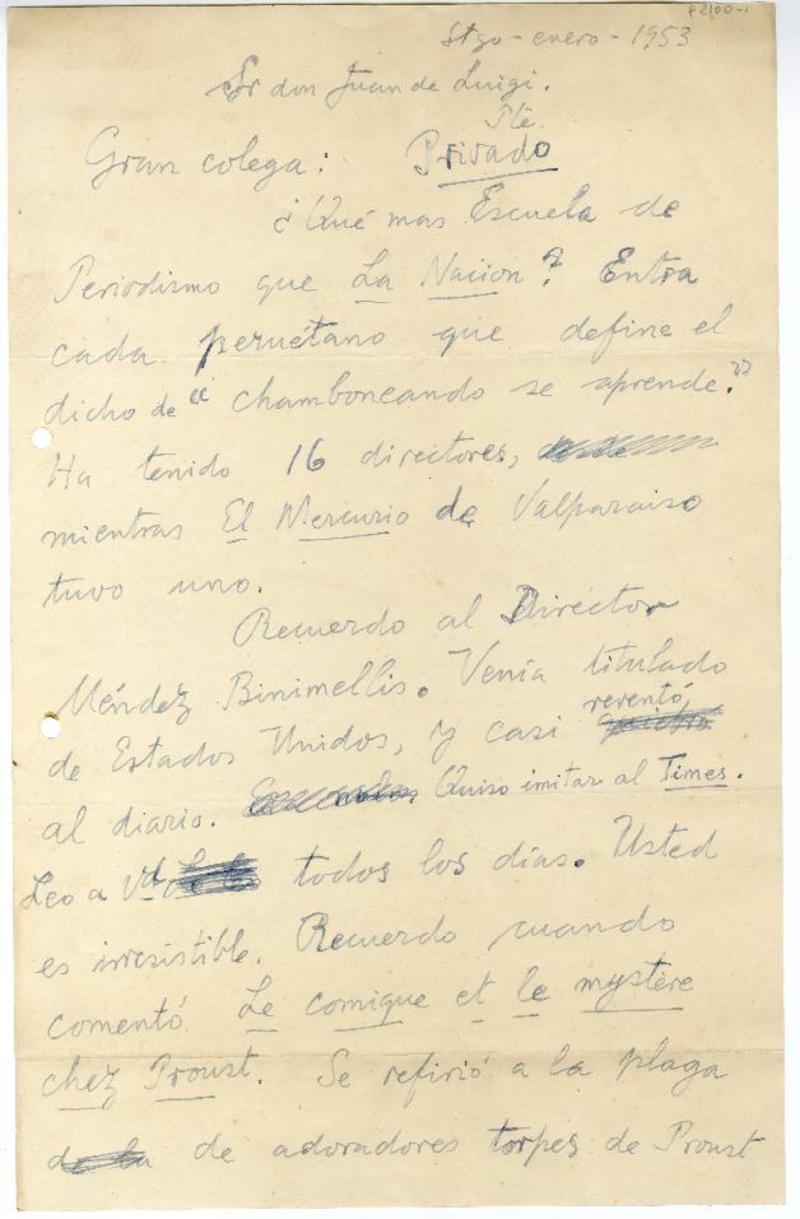 Stgo - enero - 1953
Sr don Juan de Luigi.
Pte.
Gran colega: Privado
¿Qué mas Escuela de
Periodismo que La Nacion? Entra
cada peruétano que define el
dicho de "chamboneando se aprende."
Ha tenido 16 directores,
mientras El Mercurio de Valparaiso
tuvo uno.
Recuerdo al Director
Méndez Binimellis. Venía titulado
de Estados Unidos, y casi reventó
al diario. Quiso imitar al Times.
Leo a Vd todos los días. Usted
es irresistible. Recuerdo cuando
comentó Le comique et le mystère
chez Proust. Se refirió a la plaga
de adoradores torpes de Proust